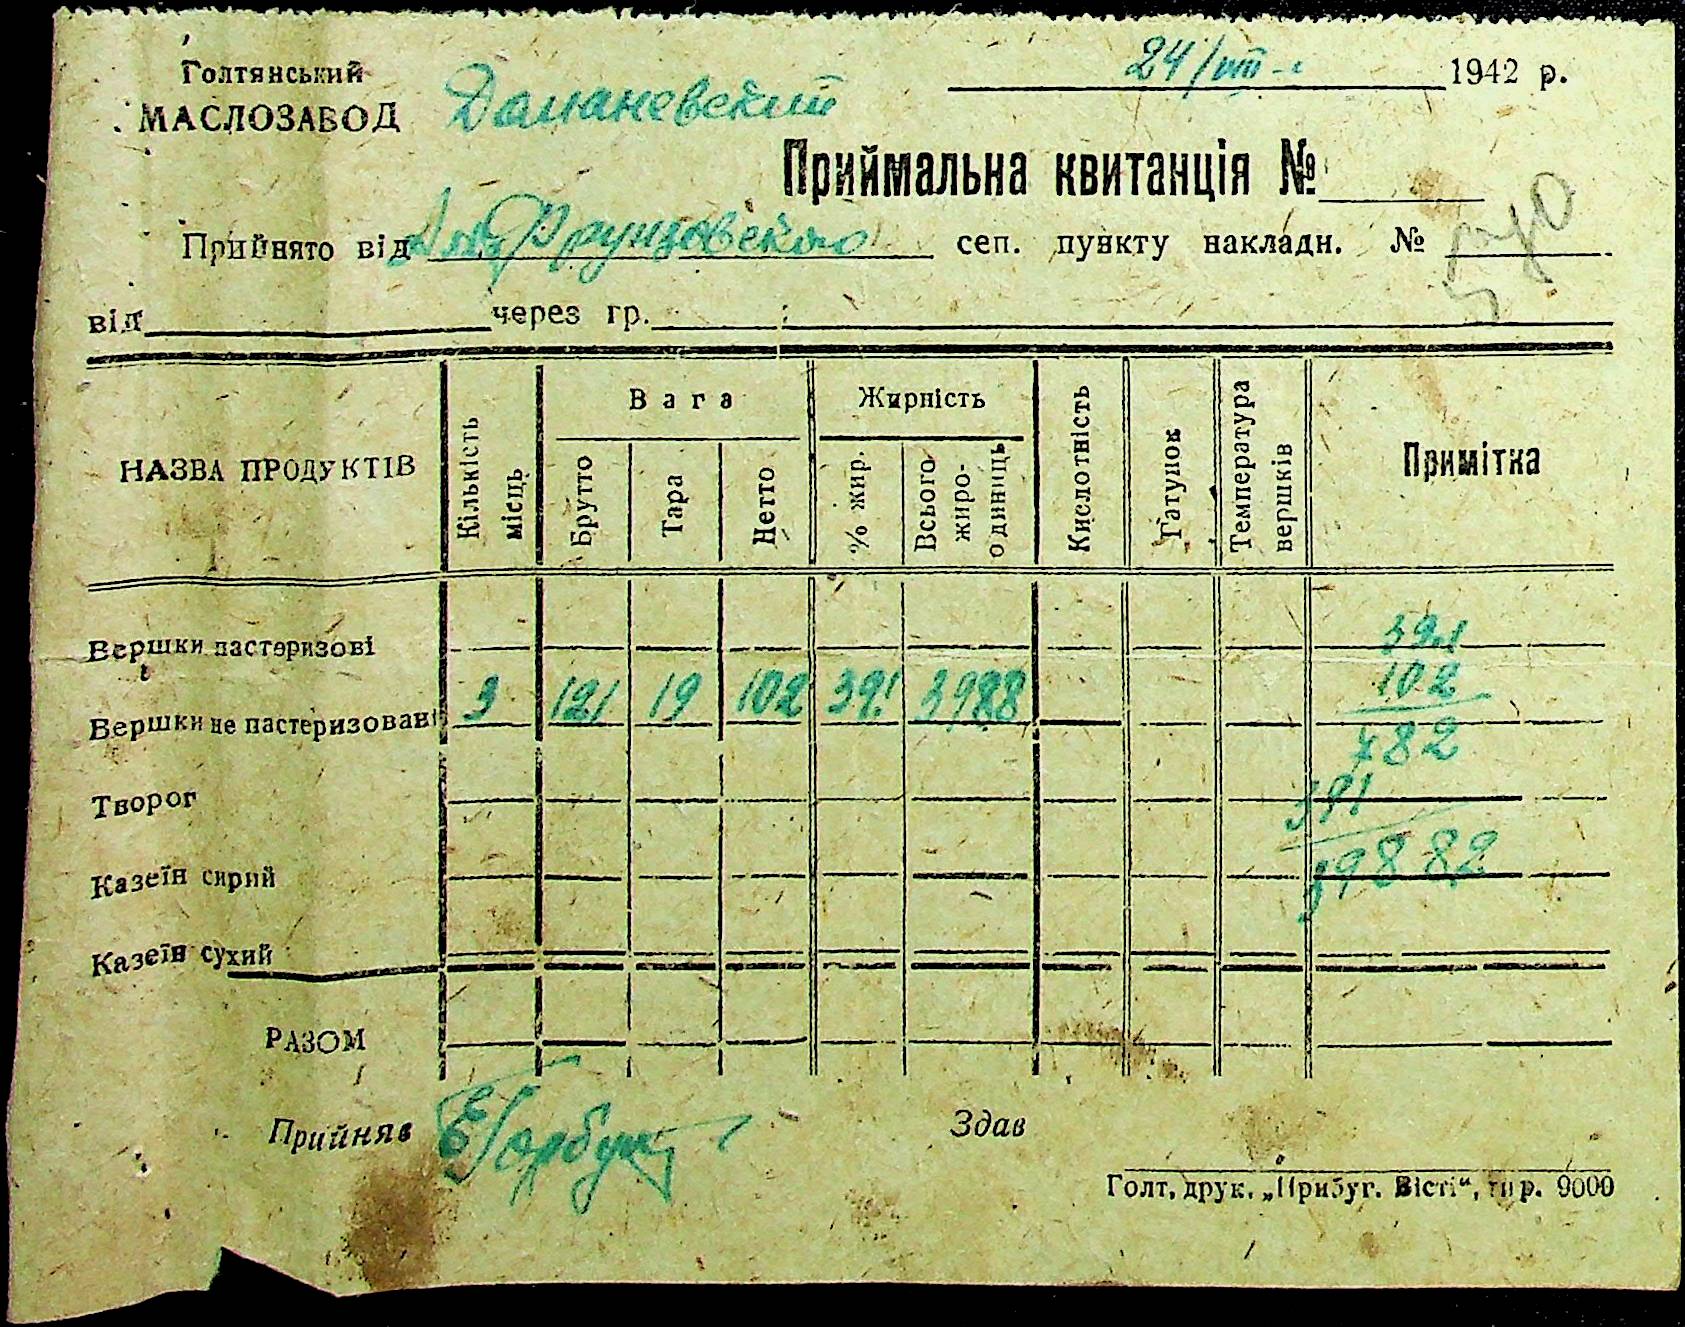 Голтянський
МАСЛОЗАВОД Доманевский
24/VIII 1942 р.
Приймальна квитанція №
Прийнято від Фрунзовского сеп. пункту накладн. №
від через гр.
НАЗВА ПРОДУКТІВ Кількість місць Вага Брутто Тара Нетто Жирність % жир. Всього жиро-одиниць Кислотність Ґатунок Температура вершків Примітка
Вершки пастеризові 39.1
102
Вершки не пастеризовані 3 121 19 102 39.1 3988
782
Творог 391
Казеїн сирий 39882
Казеїн сухий
РАЗОМ
Прийняв Е Горбун Здав
Голт. друк. „Прибуг. Вісті“, тир. 9000